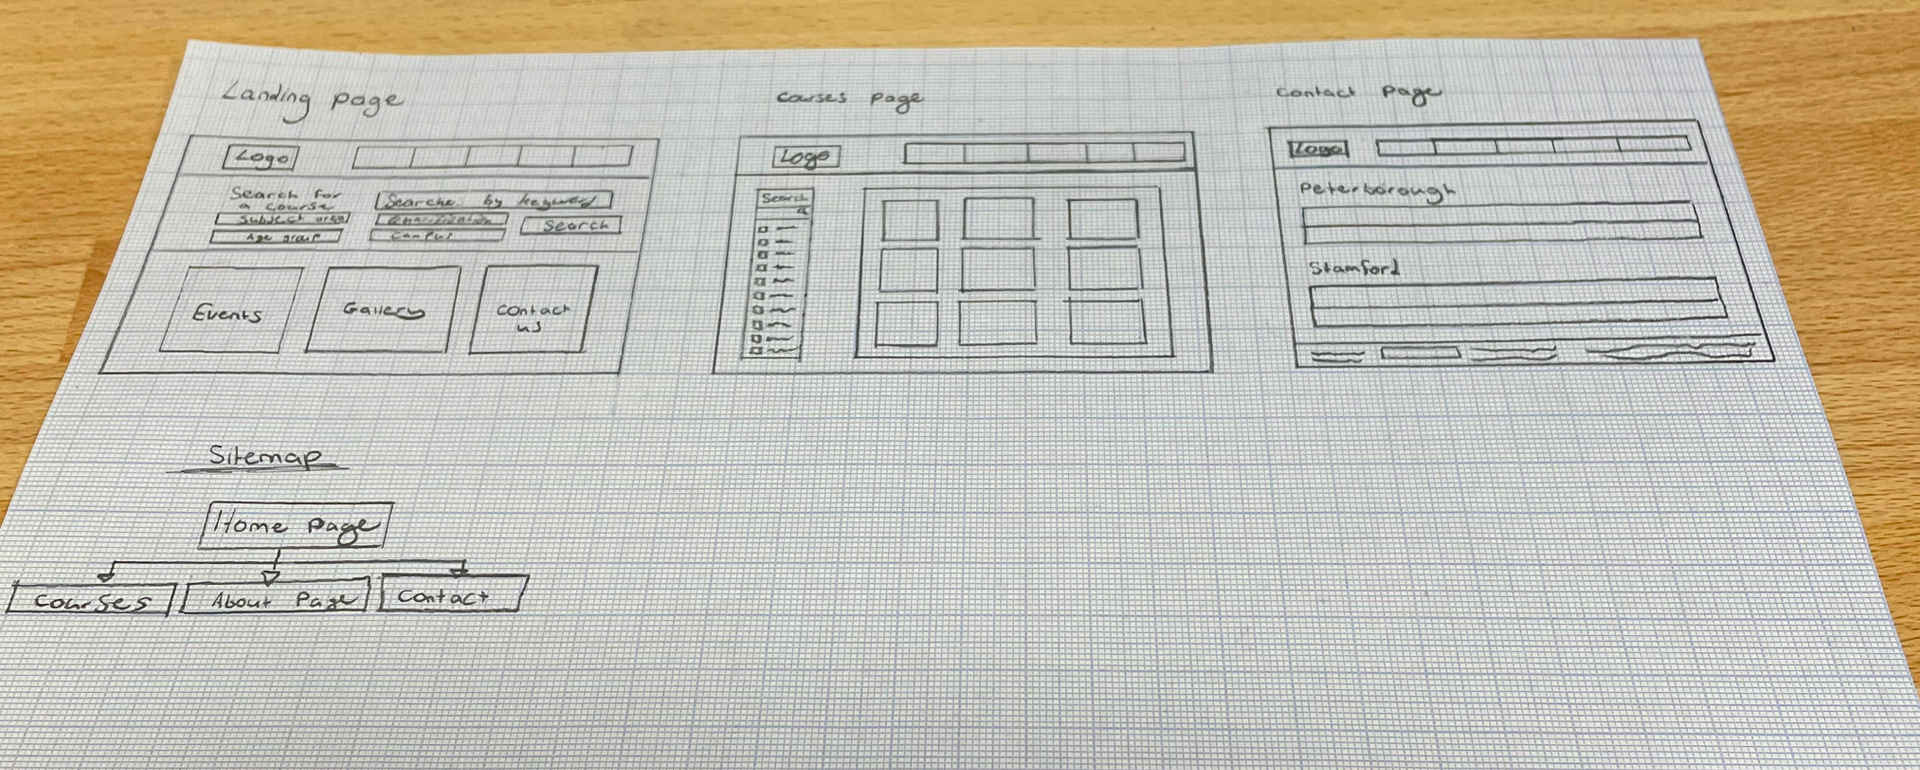 Landing page
Logo
Search for
a course
Searche by keyword
Subject area
Qualification
Search
Age group
Campus
Events
Gallery
Contact
us
Courses page
Logo
Search
Contact page
Logo
Peterborough
Stamford
Sitemap
Home page
Courses
About Page
Contact